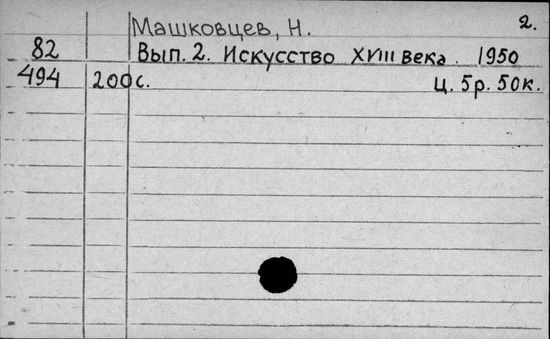 Машковцев, Н. 2.
82 Вып. 2. Искусство XVIII века. 1950
494 200с. Ц. 5р. 50к.